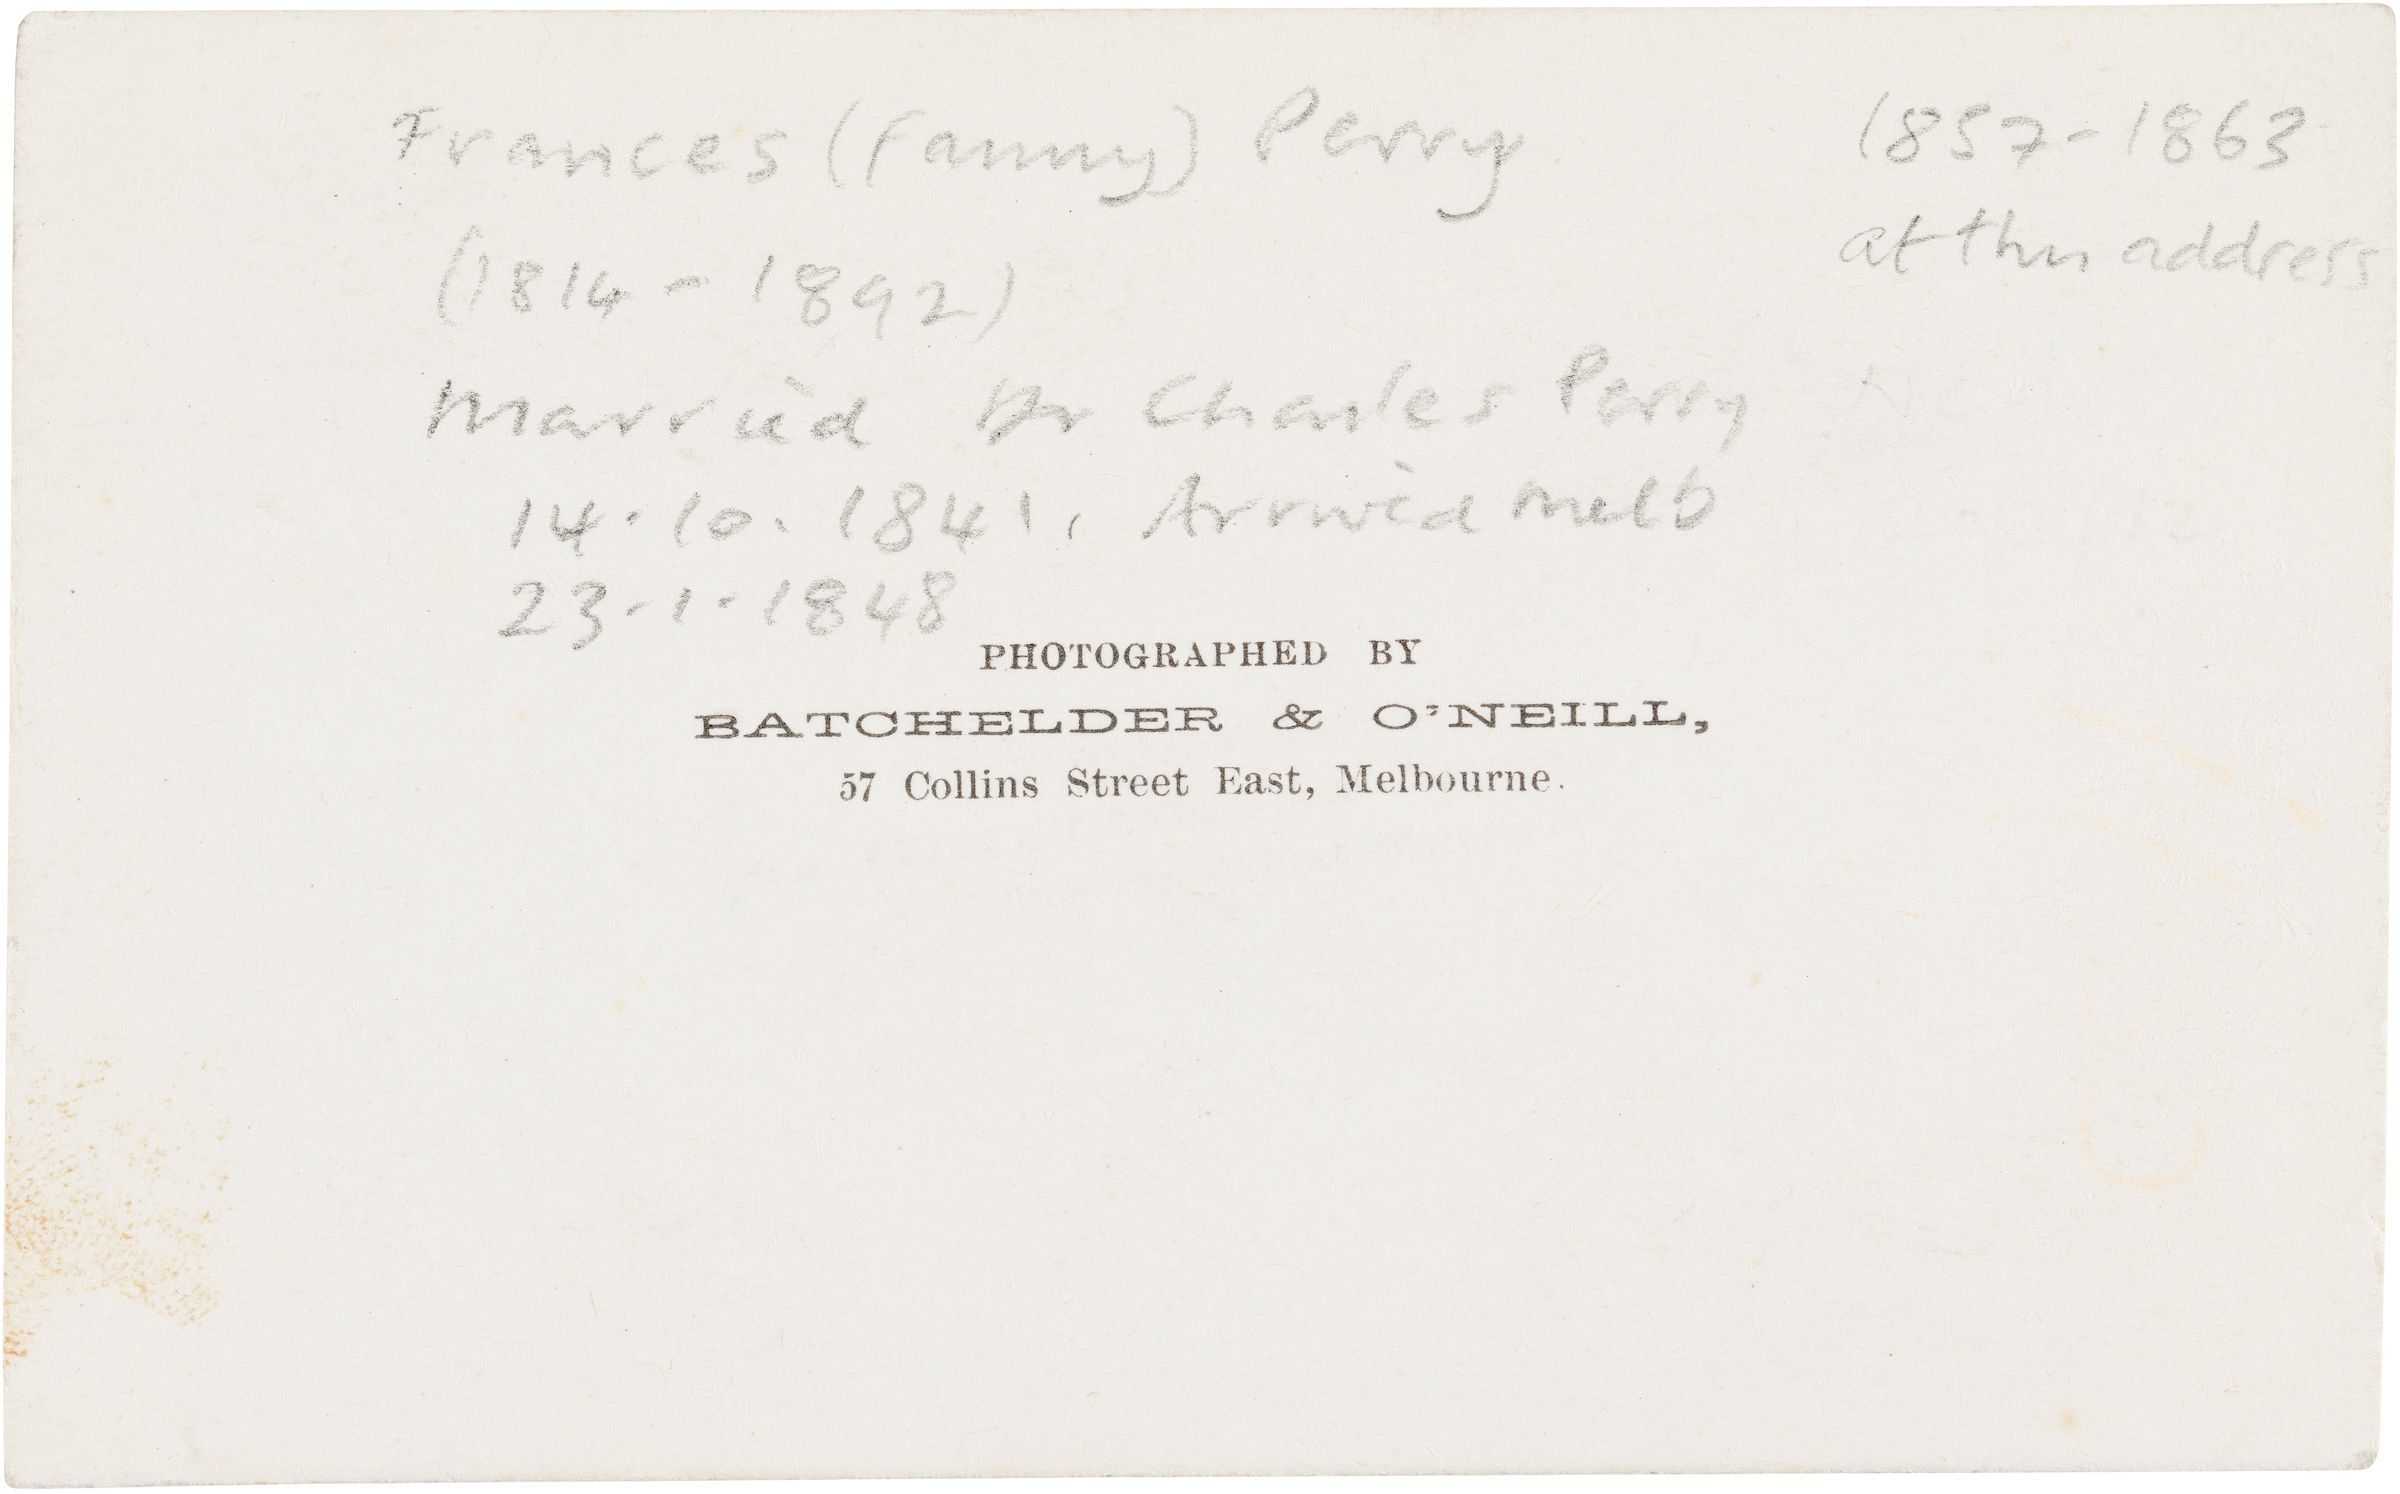 Frances (Fanny) Perry
1857-1863
at this address
(1814 - 1892)
Married Dr Charles Perry
14.10.1841. Arrived Melb
23-1-1848
PHOTOGRAPHED BY
BATCHELDER & O'NEILL,
57 Collins Street East, Melbourne.